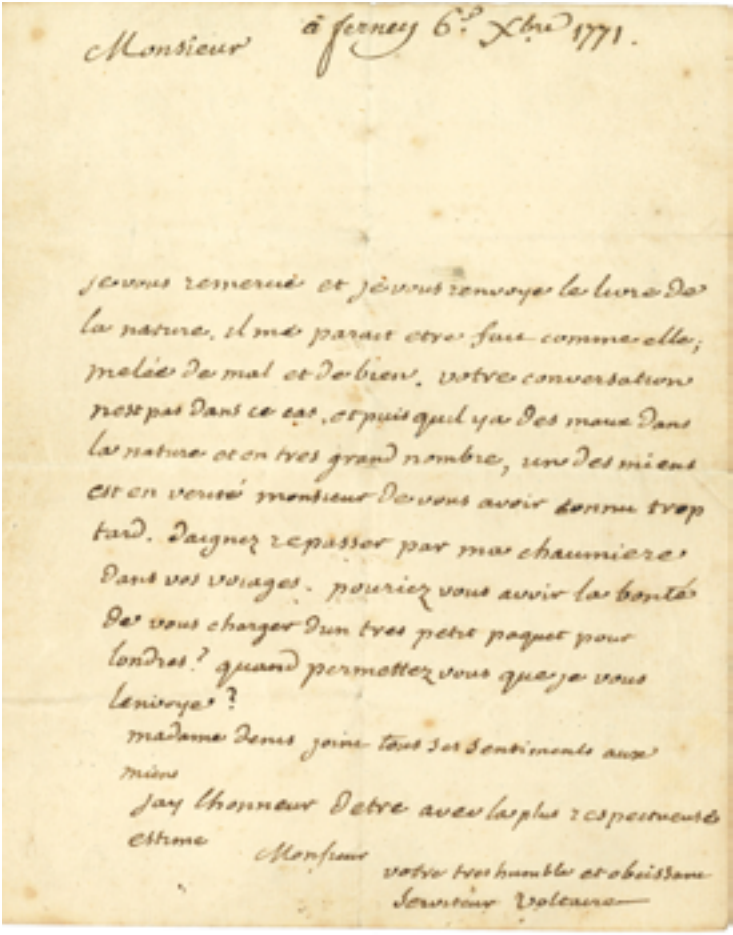 Monsieur
à ferney 6e. Xbre 1771.
je vous remercie et je vous renvoye le livre de
la nature. il me parait etre fait comme elle,
melée de mal et de bien. votre conversation
nest pas dans ce cas, et puis quil ya des maux dans
la nature et en tres grand nombre, un des miens
est en verité monsieur de vous avoir connu trop
tard. daignez repasser par ma chaumiere
dans vos voiages. pouriez vous avoir la bonté
de vous charger dun tres petit paquet pour
londres? quand permettez vous que je vous
lenvoye?
madame denis joint tous ses sentiments aux
miens
jay lhonneur detre avec la plus respectueuse
estime
Monsieur
votre tres humble et obeissant
serviteur Voltaire